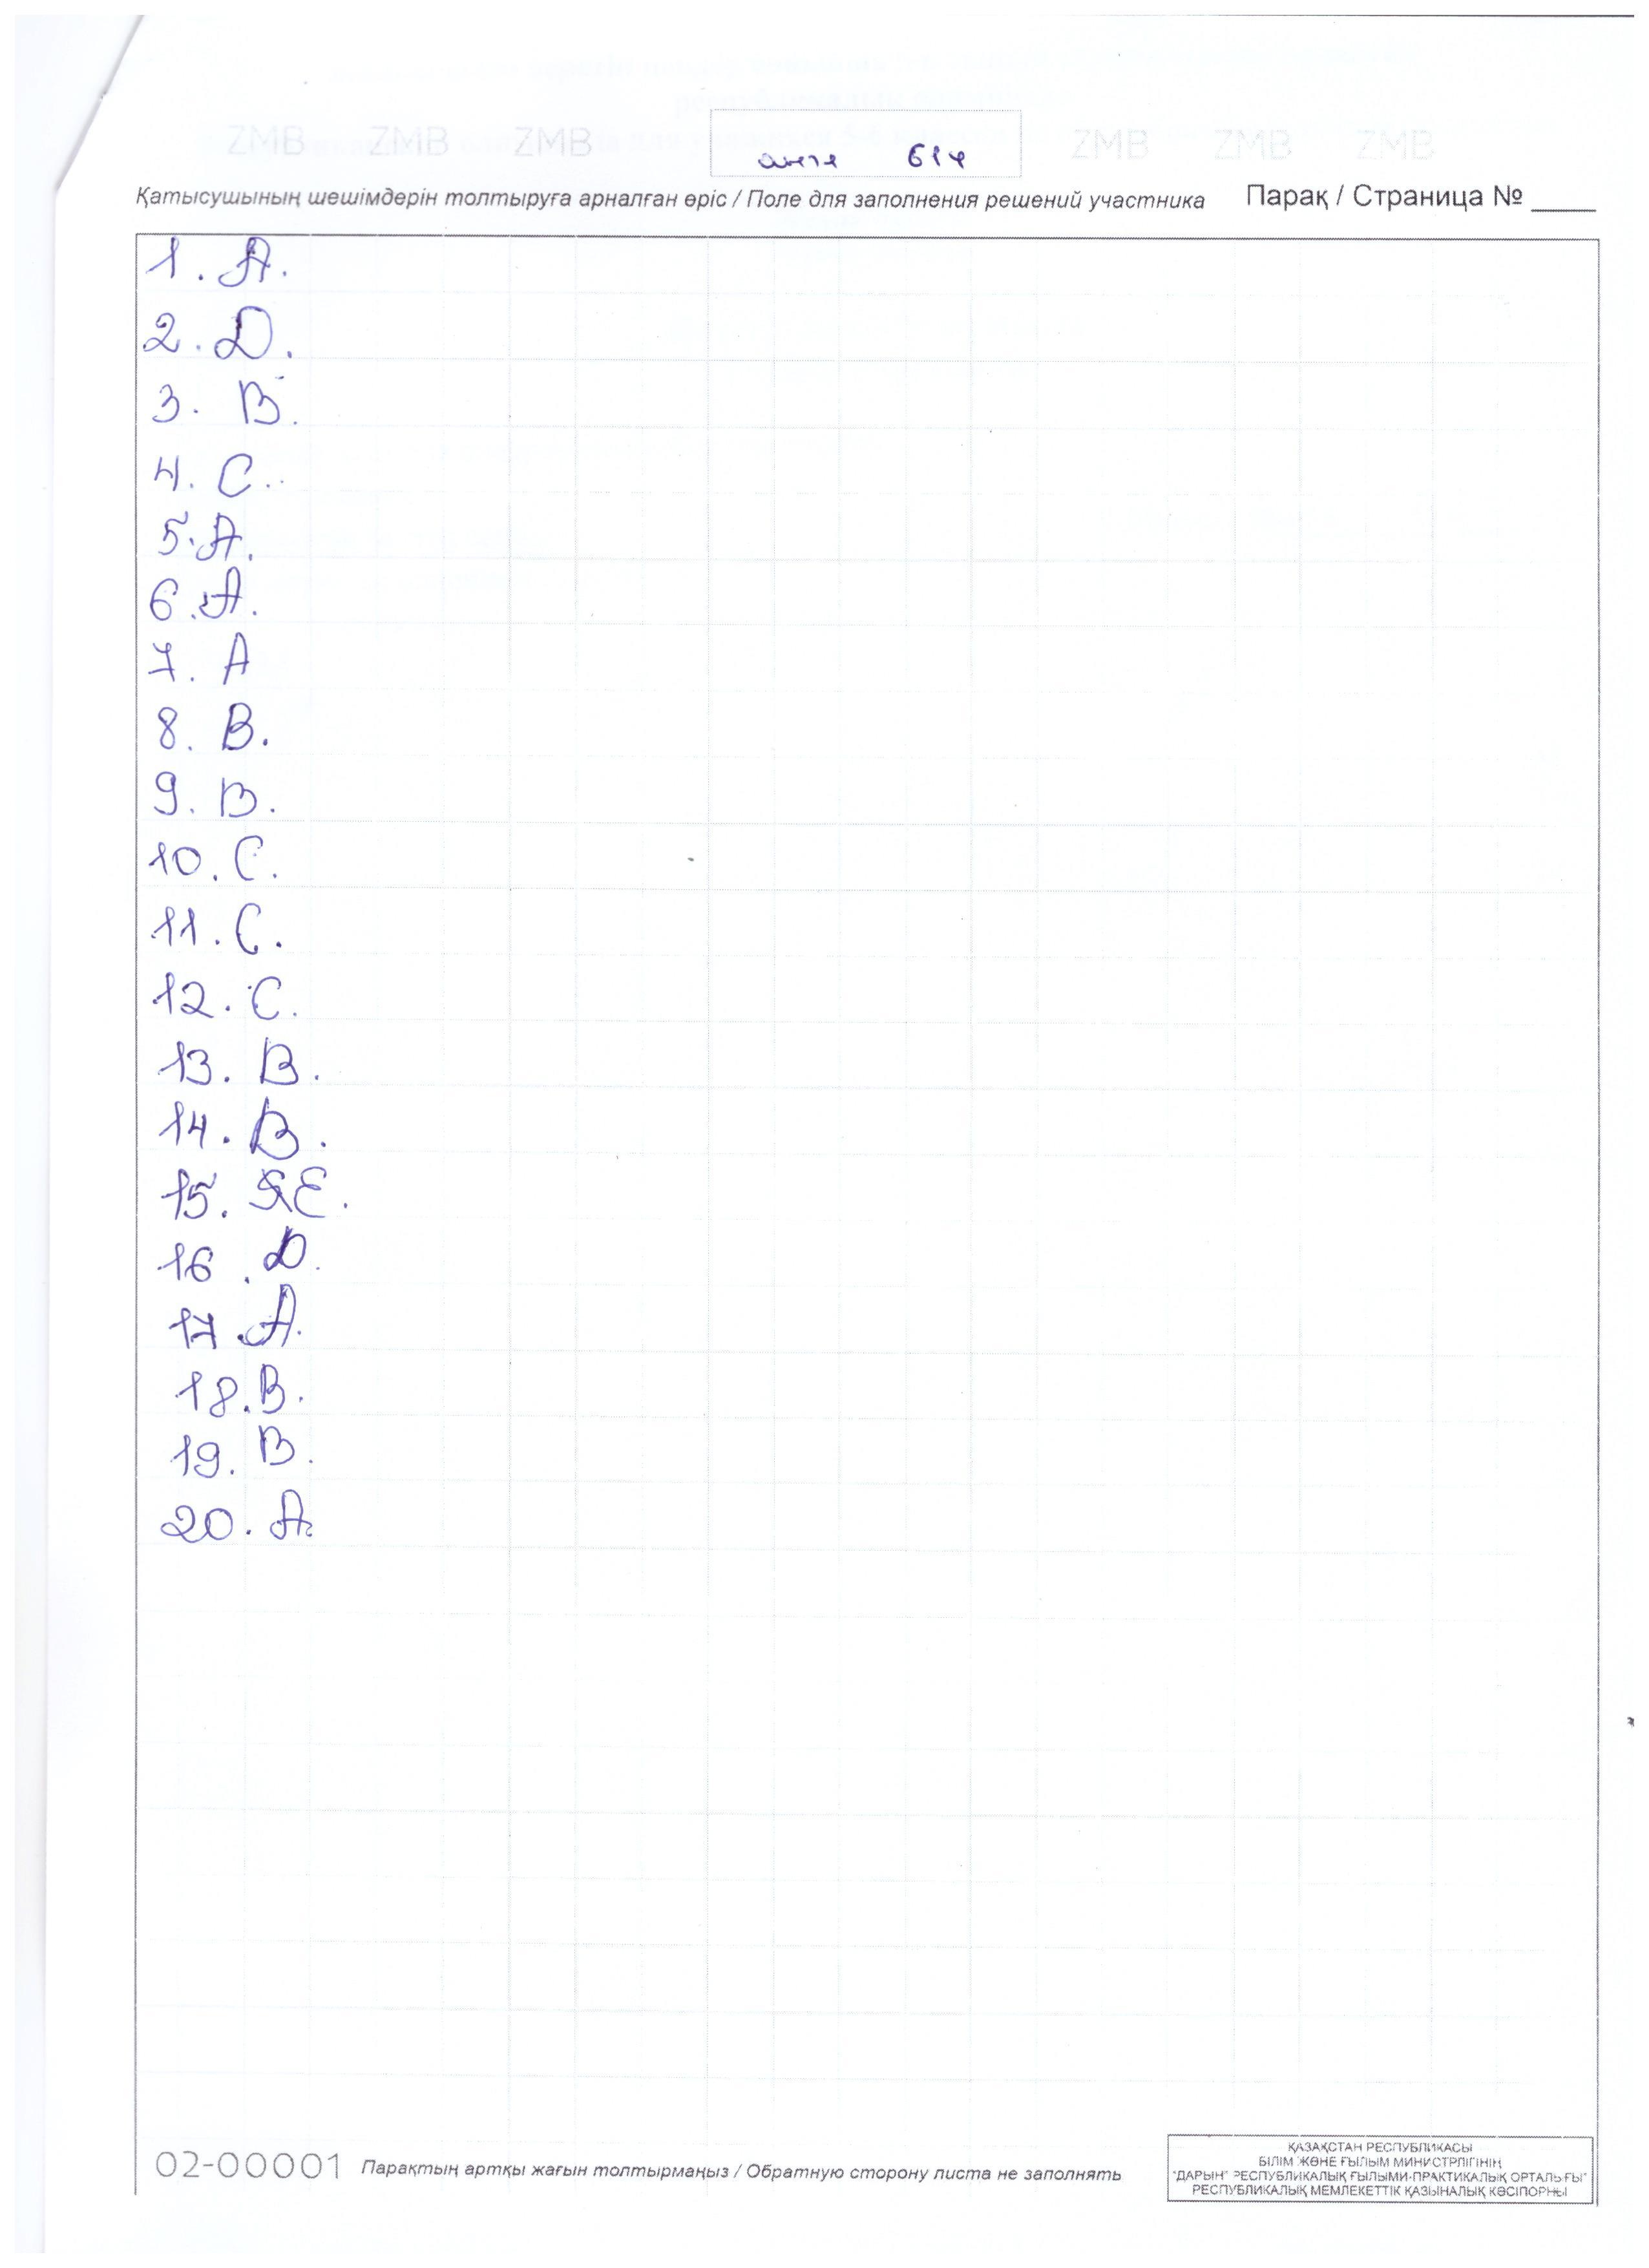 ZMB ZMB ZMB ZMB ZMB ZMB
614
Қатысушының шешімдерін толтыруға арналған өріс / Поле для заполнения решений участника Парақ / Страница № ____
1. A.
2. D.
3. B.
4. C.
5. A.
6. A.
7. A
8. B.
9. B.
10. C.
11. C.
12. C.
13. B.
14. B.
15. E.
16. D.
17. A.
18. B.
19. B.
20. A.
02-00001 Парақтың артқы жағын толтырмаңыз / Обратную сторону листа не заполнять
ҚАЗАҚСТАН РЕСПУБЛИКАСЫ
БІЛІМ ЖӘНЕ ҒЫЛЫМ МИНИСТРЛІГІНІҢ
"ДАРЫН" РЕСПУБЛИКАЛЫҚ ҒЫЛЫМИ-ПРАКТИКАЛЫҚ ОРТАЛЫҒЫ"
РЕСПУБЛИКАЛЫҚ МЕМЛЕКЕТТІК ҚАЗЫНАЛЫҚ КӘСІПОРНЫ